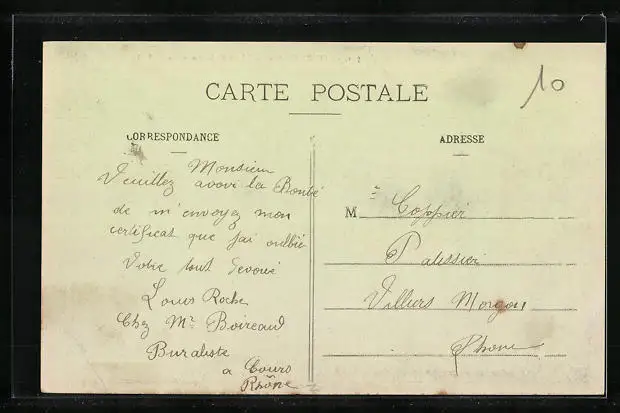 10
CARTE POSTALE
CORRESPONDANCE
Monsieur
Veuillez avoir la Bonté
de m'envoyez mon
certificat que j'ai oublié
Votre tout Devoué
Louis Roche
Chez Mr Boireaud
Buraliste
a Cours
Rhône
ADRESSE
M Coppier
Patissier
Villiers Morgon
Rhone